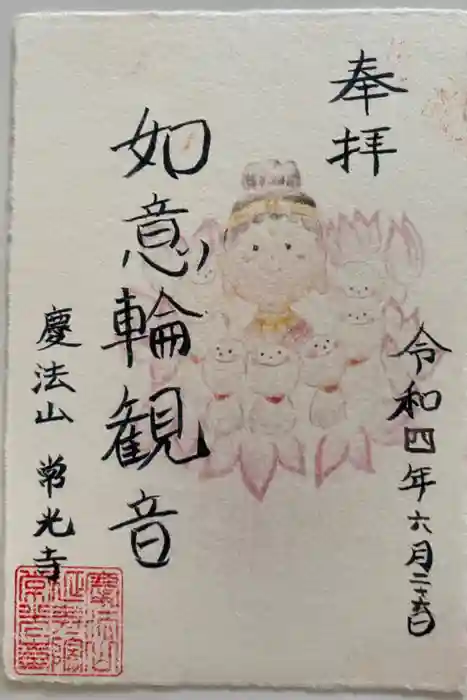 奉拝
如意輪観音
令和四年六月二十五日
慶法山 常光寺